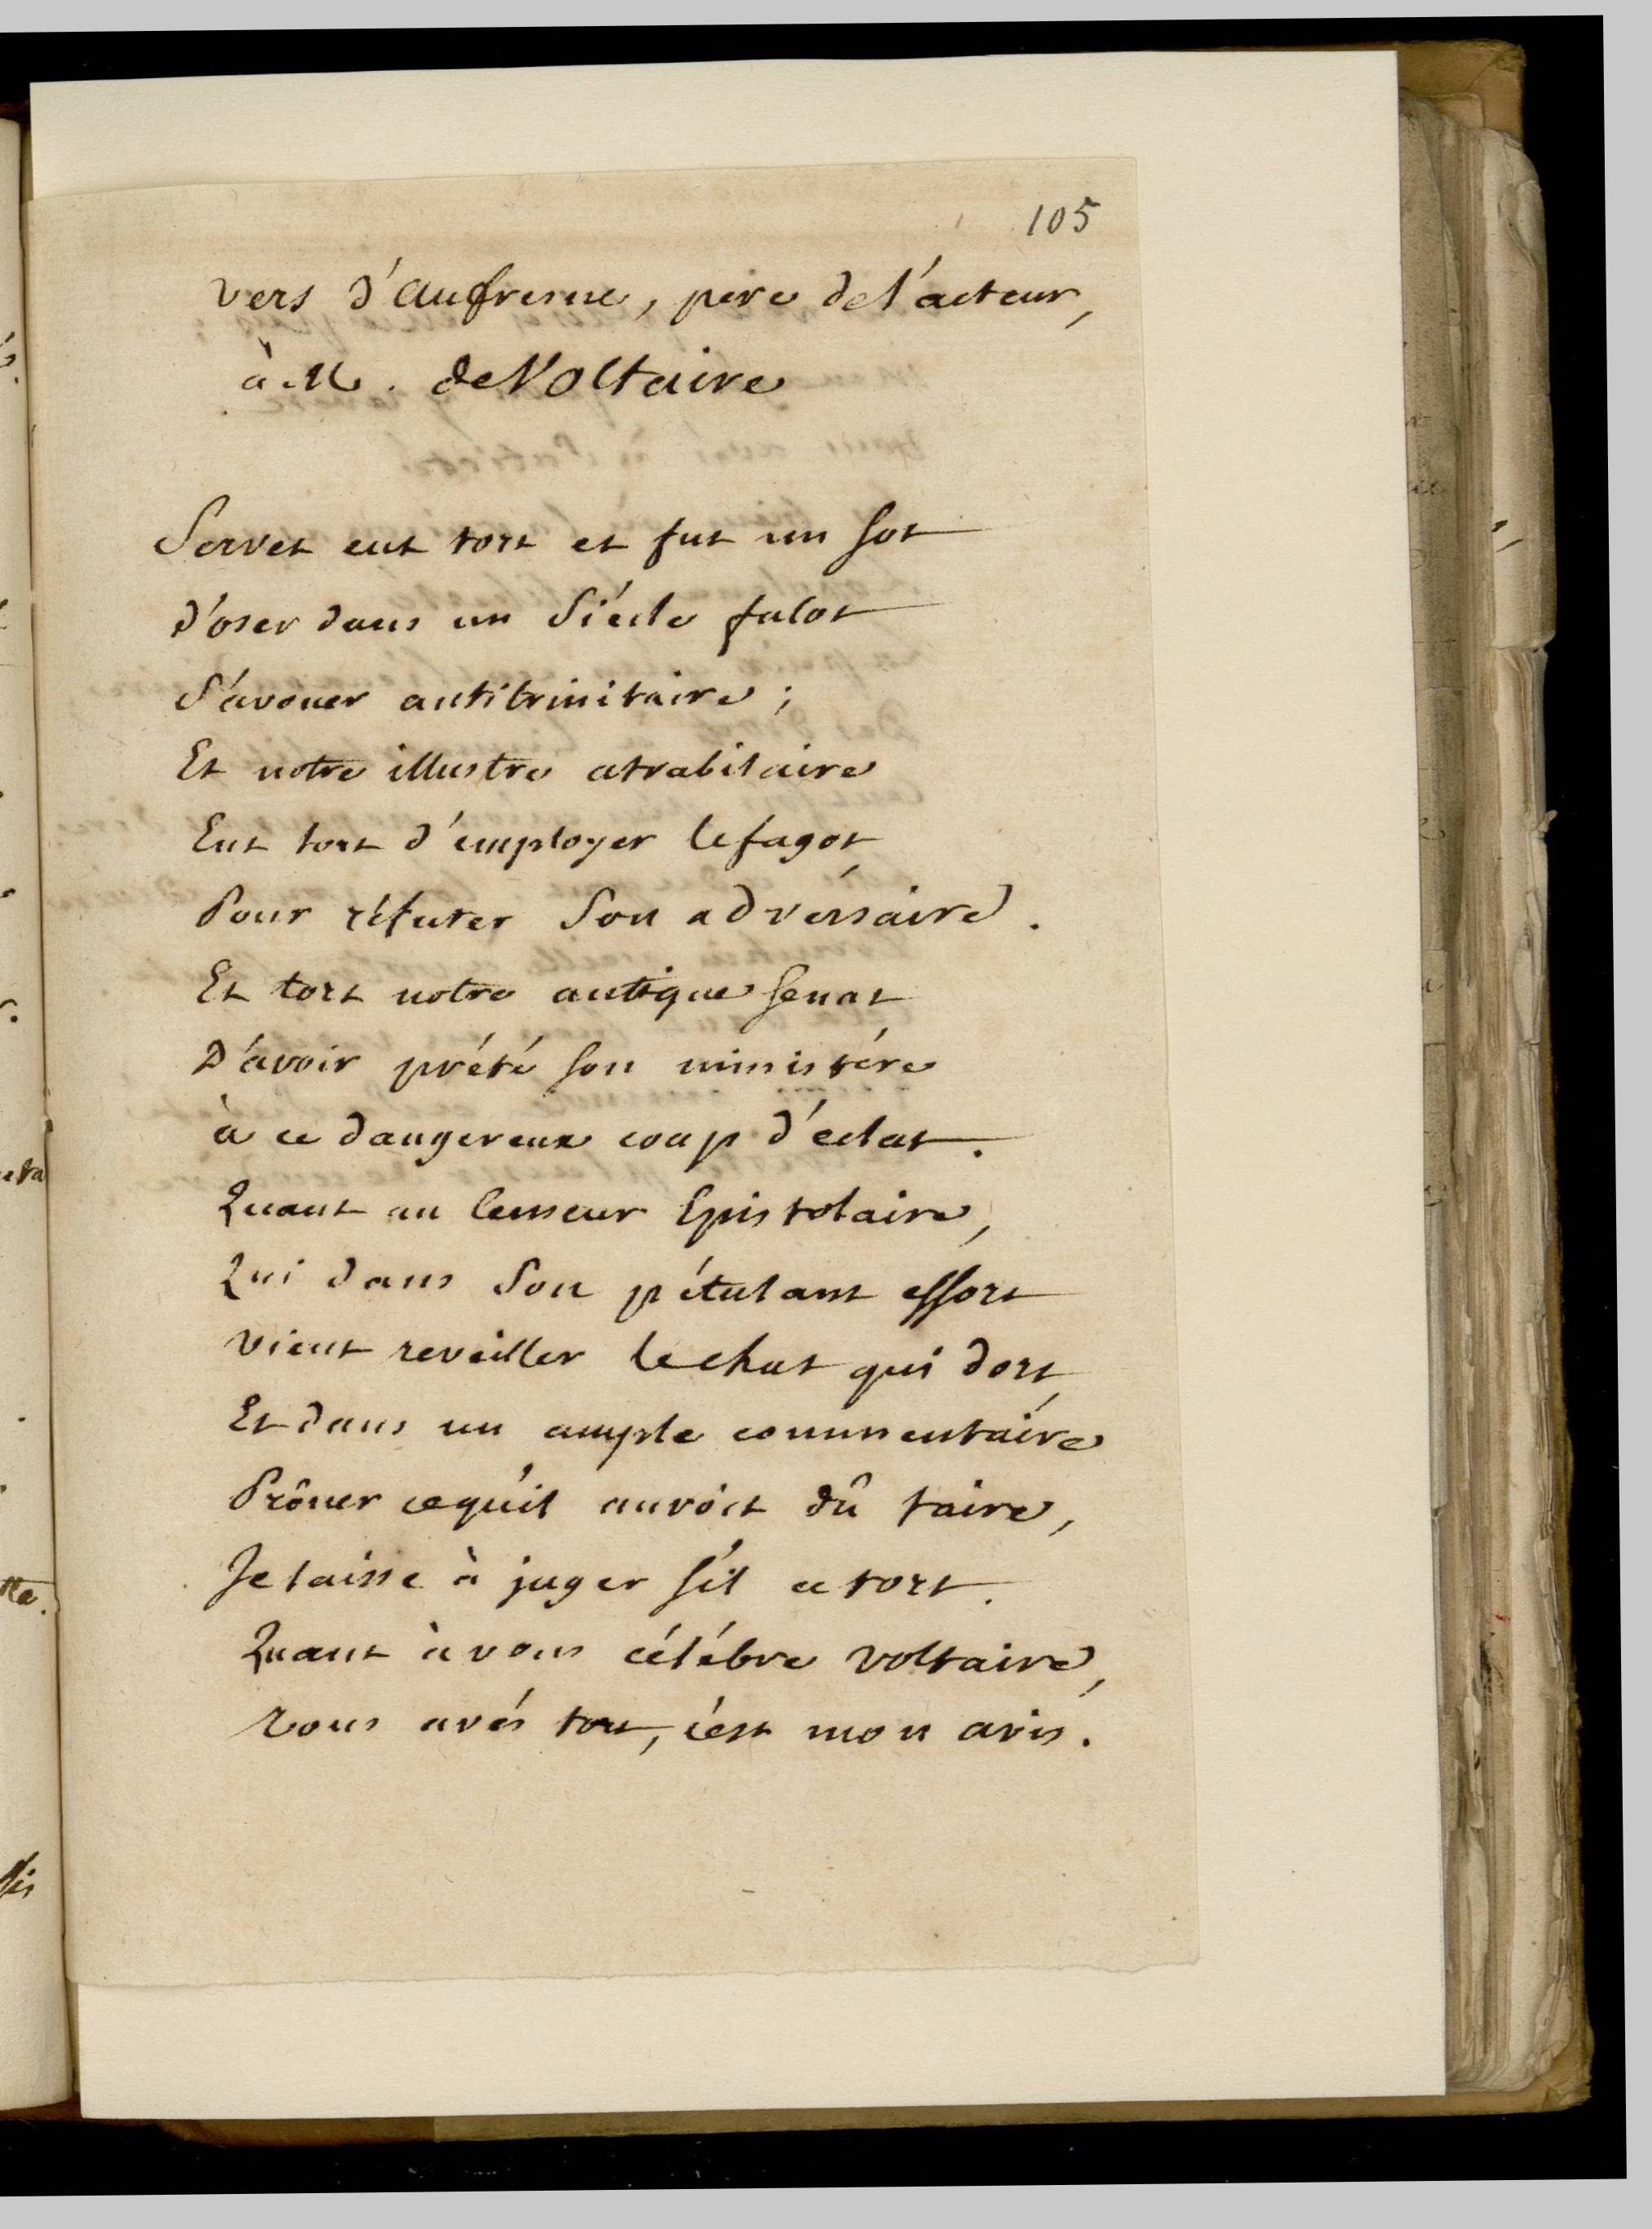 105
vers d'aufresne, pere de l'acteur,
à M. de Voltaire
Servet eut tort et fut un sot
d'oser dans un siécle falot
s'avouer antitrinitaire ;
Et notre illustre atrabilaire
Eut tort d'employer le fagot
Pour réfuter son adversaire.
Et tort notre antique senat
D'avoir prété son ministére
à ce dangereux coup d'éclat.
Quant au Censeur Epistolaire,
Qui dans son pétulant effort
vient reveiller le chat qui dort,
Et dans un ample commentaire
Prôner ce qu'il auroit dû taire,
Je laisse à juger s'il a tort.
Quant à vous célébre voltaire,
vous avés tort, c'est mon avis.